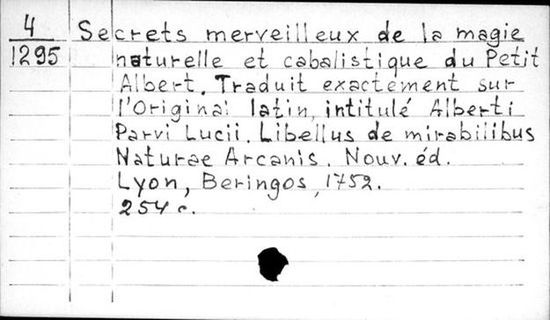 4
1295
Secrets merveilleux de la magie
naturelle et cabalistique du Petit
Albert. Traduit exactement sur
l'Original latin, intitulé Alberti
Parvi Lucii. Libellus de mirabilibus
Naturae Arcanis. Nouv. éd.
Lyon, Beringos, 1752.
254 c.